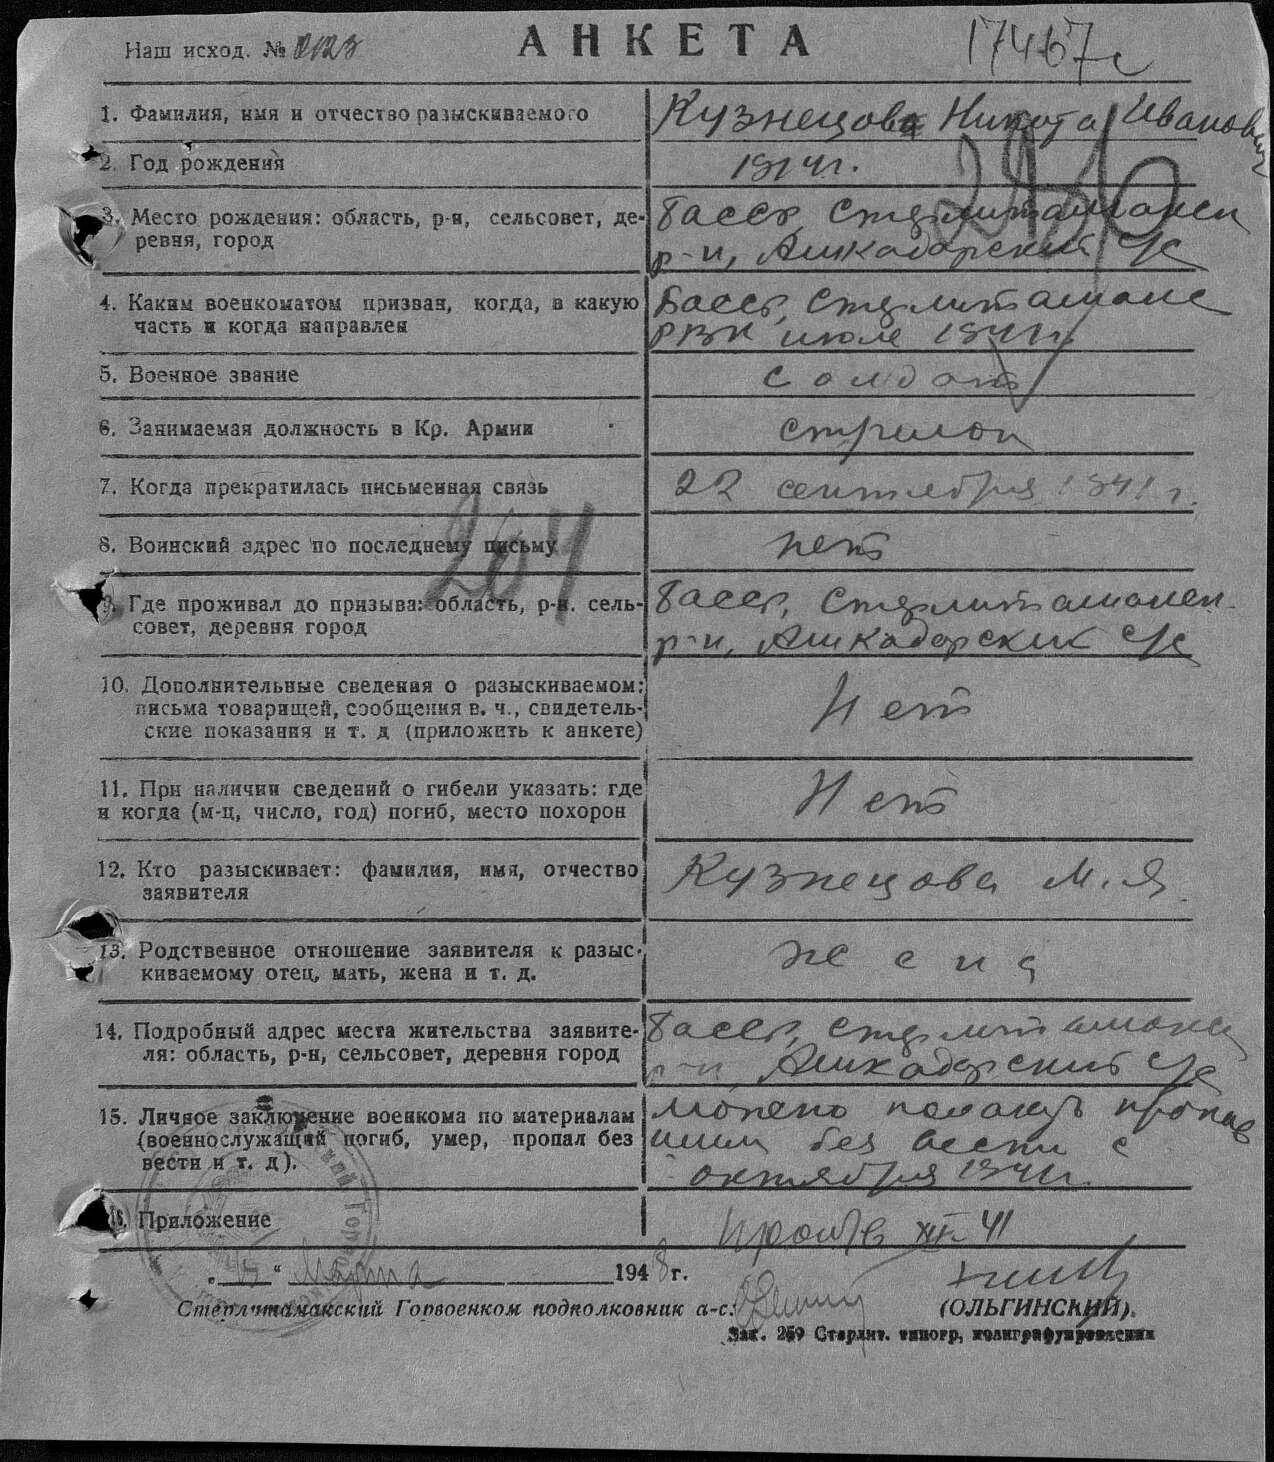 Наш исход. №
АНКЕТА
17467с
1. Фамилия, имя и отчество разыскиваемого
Кузнецова Никита Иванович
2. Год рождения
1914 г.
3. Место рождения: область, р-н, сельсовет, де-
ревня, город
Басср, Стерлитамакск
р-н, Ашкадарский с/с
4. Каким военкоматом призван, когда, в какую
часть и когда направлен
Басср, Стерлитамакс
РВК июле 1941 г.
5. Военное звание
солдат
6. Занимаемая должность в Кр. Армии
стрелок
7. Когда прекратилась письменная связь
22 сентября 1941 г.
204
8. Воинский адрес по последнему письму
нет
9. Где проживал до призыва: область, р-н. сель-
совет, деревня город
Басср, Стерлитамакск.
р-н, Ашкадарский с/с
10. Дополнительные сведения о разыскиваемом:
письма товарищей, сообщения в. ч., свидетель-
ские показания и т. д (приложить к анкете)
Нет
11. При наличии сведений о гибели указать: где
и когда (м-ц, число, год) погиб, место похорон
Нет
12. Кто разыскивает: фамилия, имя, отчество
заявителя
Кузнецова М. Я.
13. Родственное отношение заявителя к разыс-
киваемому отец, мать, жена и т. д.
жена
14. Подробный адрес места жительства заявите-
ля: область, р-н, сельсовет, деревня город
Басср, Стерлитамакск
р-н, Ашкадарский с/с
15. Личное заключение военкома по материалам
(военнослужащий погиб, умер, пропал без
вести и т. д).
Можно полагать пропав
шим без вести с
октября 1941 г.
16. Приложение
XII-41
„15“ Марта 1948 г.
Стерлитамакский Горвоенком подполковник а-с:
(ОЛЬГИНСКИЙ).
Зак. 269 Стерлит. типогр,